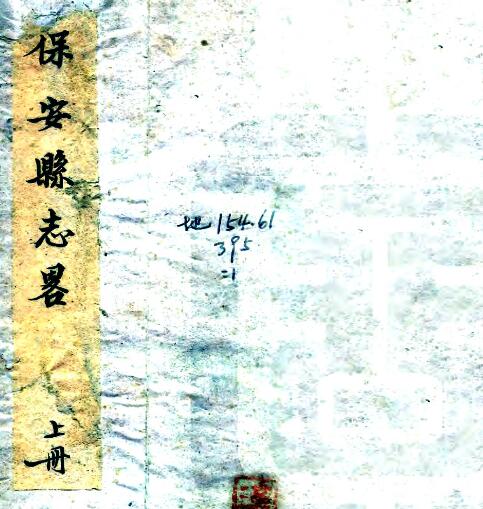 保安縣志畧
上冊
地154.61
395
=1